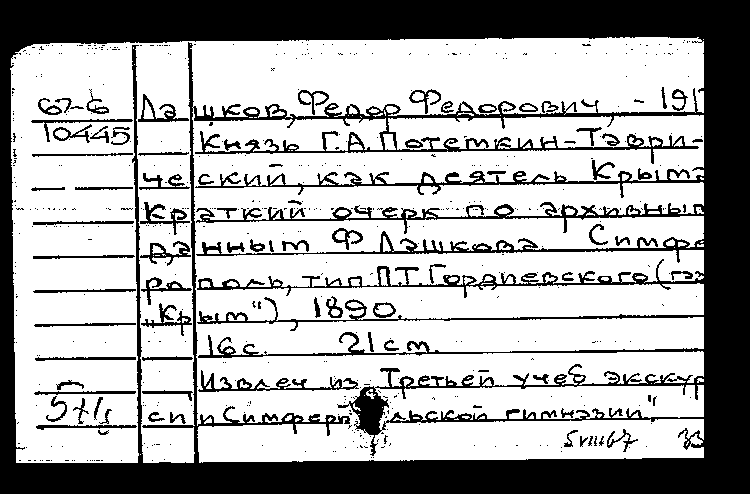 67-6 Лашков, Федор Федорович, - 191
10445 Князь Г.А. Потемкин-Таври-
ческий, как деятель Крыма
Краткий очерк по архивным
данным Ф Лашкова. Симфе
рополь, тип П.Т. Гордиевского (газ
"Крым"), 1890.
16 с. 21 см.
Извлеч из "Третьей учеб экскур
сии Симферопольской гимназии".
5 VIII 67